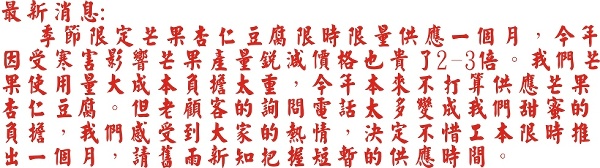 最新消息:
季節限定芒果杏仁豆腐限時限量供應一個月，今年
因受寒害影響芒果產量銳減價格也貴了2-3倍。我們芒
果使用量大成本負擔太重，今年本來不打算供應芒果
杏仁豆腐。但老顧客的詢問電話太多變成我們甜蜜的
負擔，我們感受到大家的熱情，決定不惜工本限時推
出一個月，請舊雨新知把握短暫的供應時間。